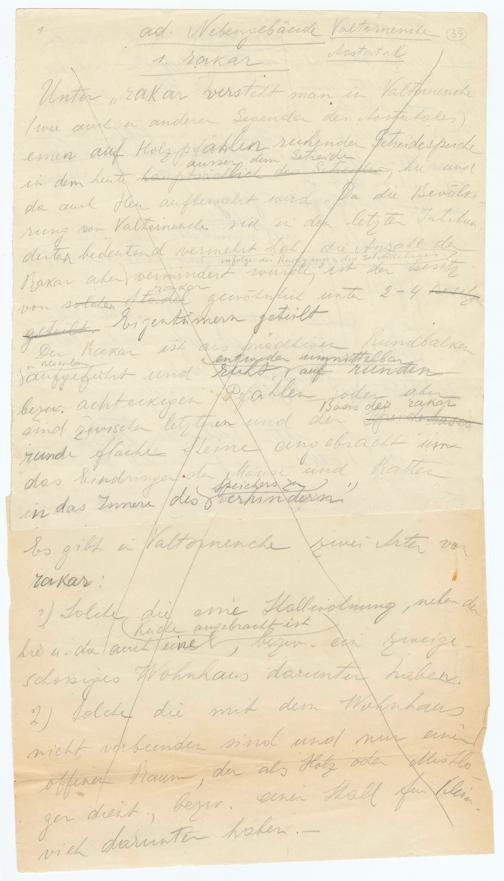 1.
ad. Nebengebäude Valtornenche (39)
Aostatal
1. rakar
Unter "rakar" versteht man in Valtornenche
(wie auch in anderen Gegenden des Aostatales)
einen auf Holzpfählen ruhenden Getreidespeicher
ausser dem Getreide
in dem heute hauptsächlich, hie und
da auch Heu aufbewahrt wird. Da die Bevölke-
rung von Valtornenche sich in den letzten Jahrhun-
derten bedeutend vermehrt hat, die Anzahl der
infolge des Rückganges des Getreidebaues
Rakar aber vermindert wurde, ist der Besitz
rakar
von solchen gewöhnlich unter 2-4
geteilt. Eigentümern geteilt
Der Rakar ist aus mächtigen Rundbalken
entweder unmittelbar
aufgeführt und ruht auf runden
bezw. achteckigen Pfählen oder aber
Basis des rakar
sind zwischen letzteren und der
runde flache Steine angebracht um
das Eindringen der Mäuse und Ratten
Speichers zu
in das Innere des verhindern.
Es gibt in Valtornenche zwei Arten von
rakar:
1) Solche die eine Stallwohnung, neben der
Küche angebracht ist
hie u. da auch eine, bezw. ein zweige-
schossiges Wohnhaus darunter haben.
2) Solche die mit dem Wohnhaus
nicht verbunden sind und nur einen
offenen Raum, der als Holz oder
ger dient, bezw. einen Stall für Klein-
vieh darunter haben.—